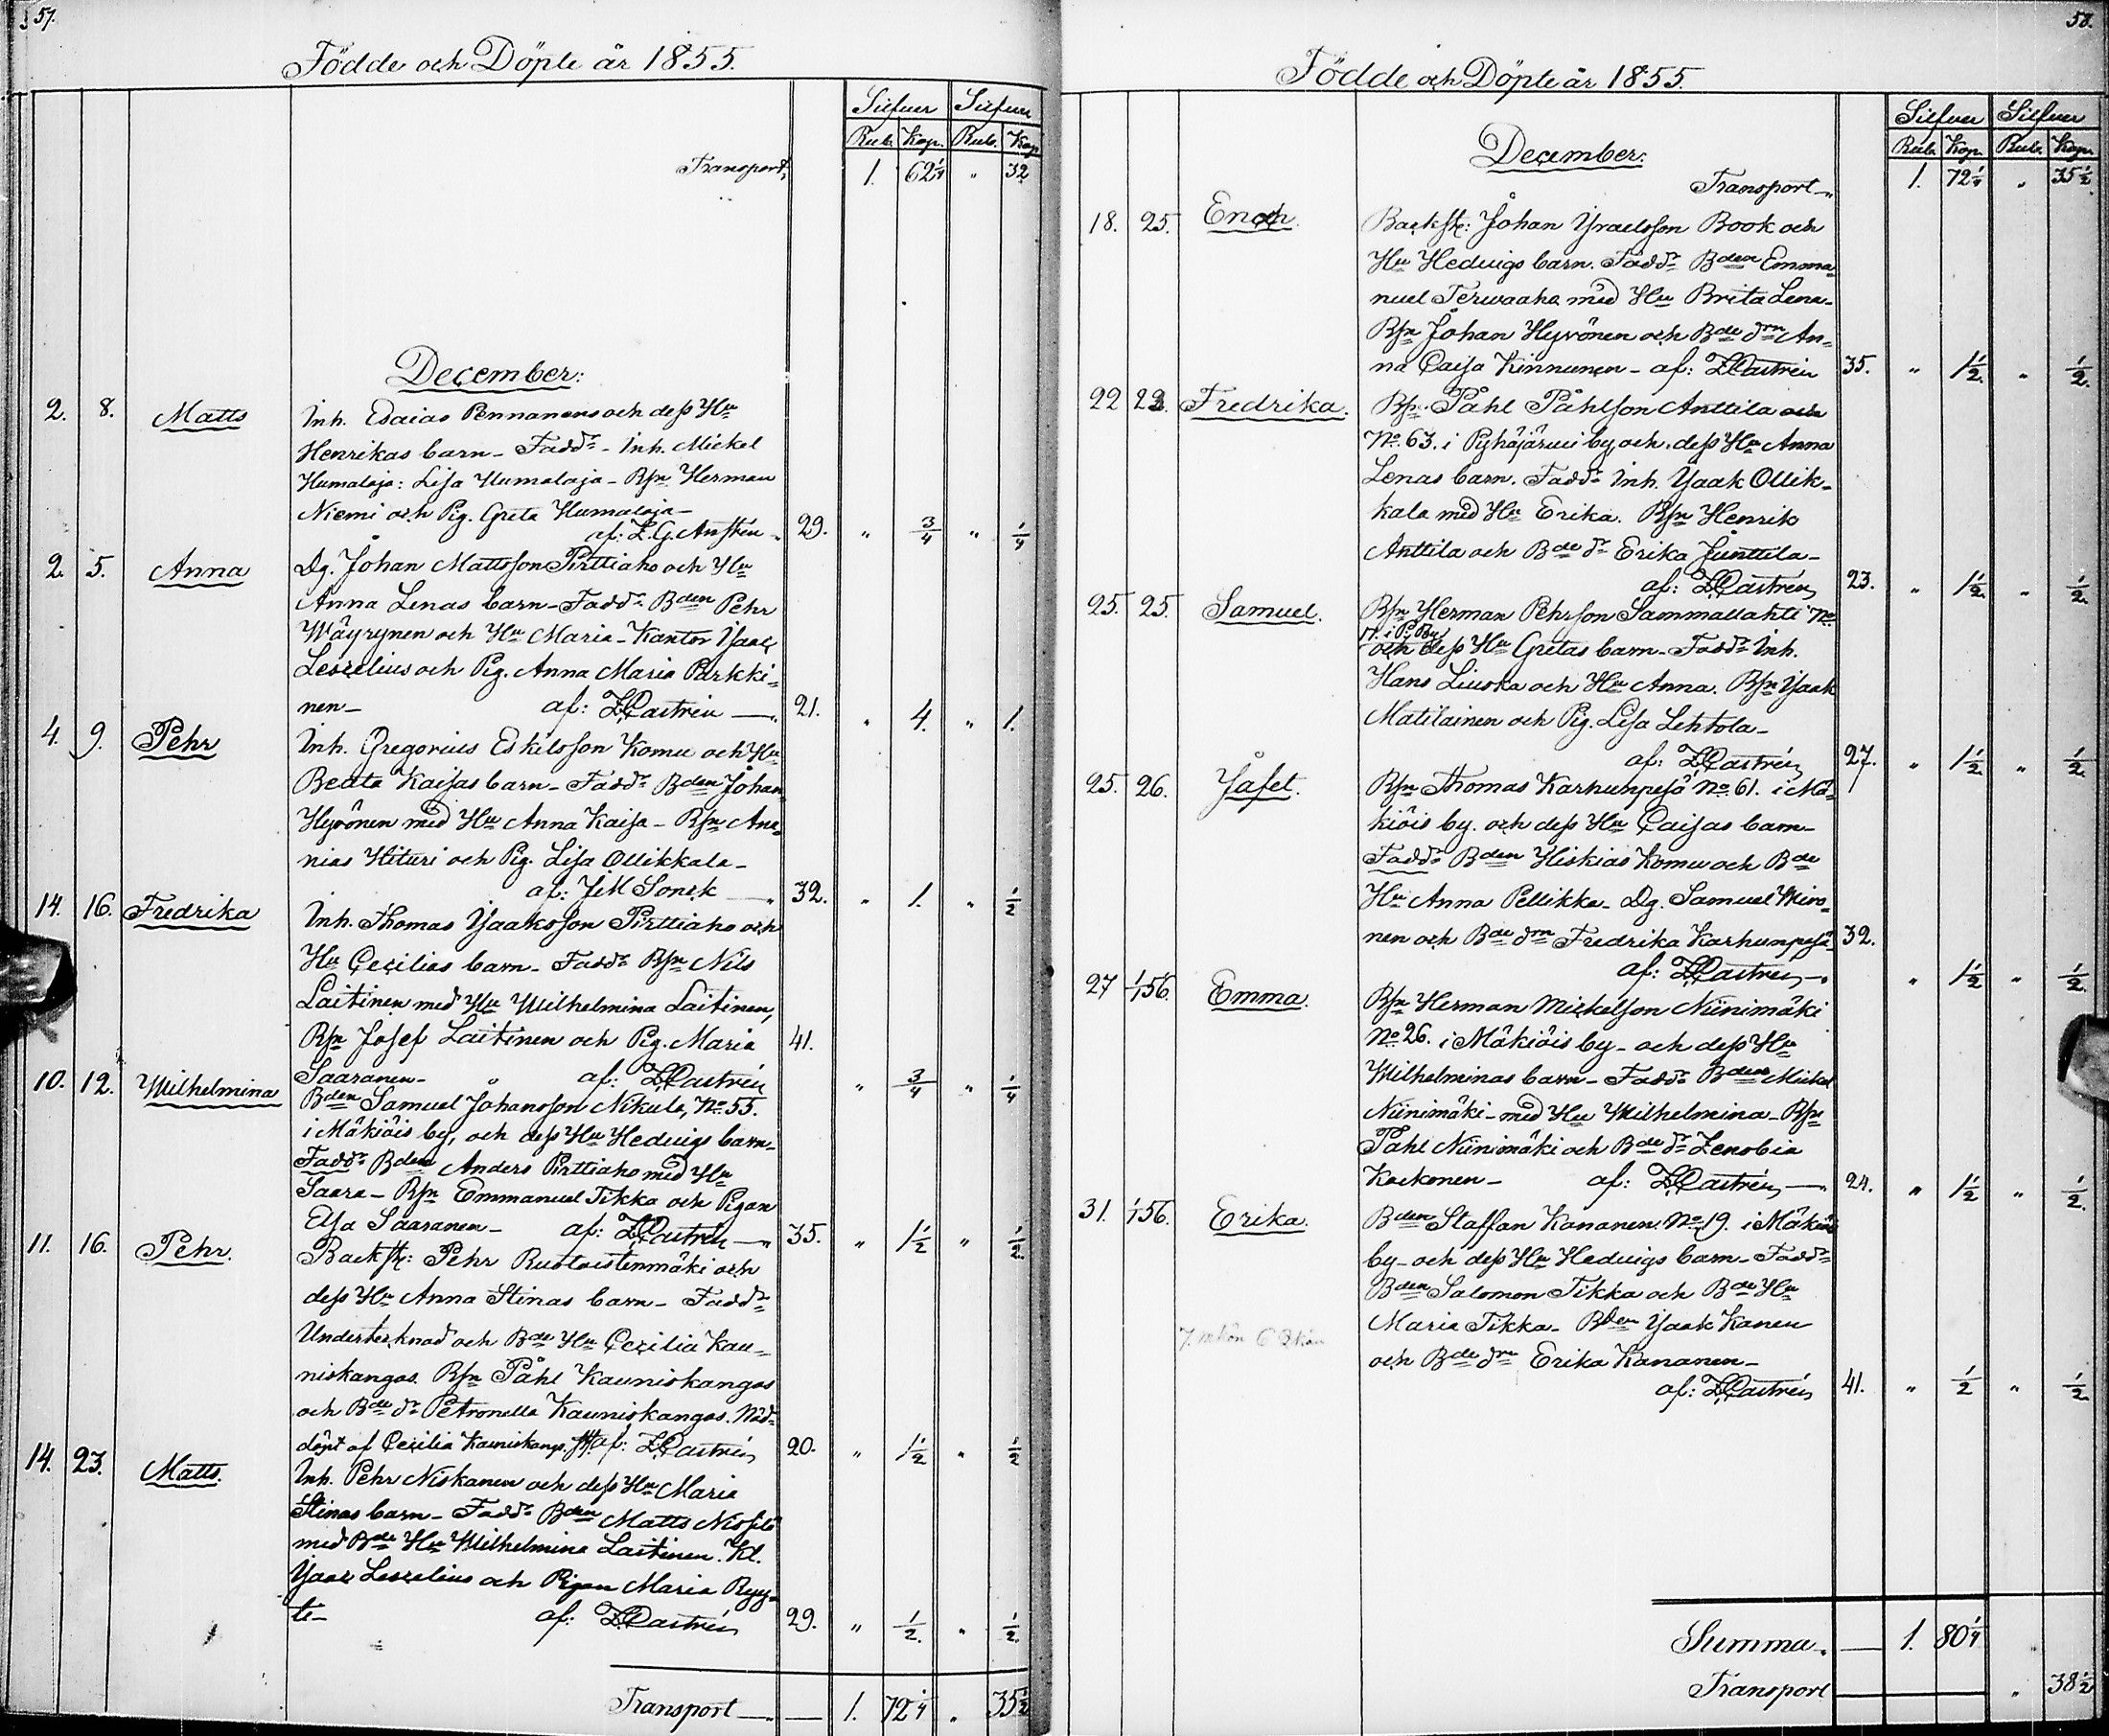 57.
Födde och Döpte år 1855.
Silfver Silfver
Rub. Kop. Rub. Kop
Transport, 1. 62 1/4 " 32
December:
2. 8. Matts Inh. Esaias Pennanens och dess Hu
Henrikas barn - Faddr - Inh. Mickel
Humaloja: Lisa Humaloja - Bsn Herman
Niemi och Pig. Greta Humaloja -
af: Z.G. 29. " 3/4 " 1/4
2. 5. Anna Dg. Johan Mattsson Pirttiaho och Hu
Anna Lenas barn - Faddr Bden Pehr
Wäyrynen och Hu Maria - Kantor Isaac
Lescelius och Pig. Anna Maria Parkki-
nen - af: ZCastrén 21. " 4. " 1.
4. 9. Pehr Inh. Gregorius Eskilsson Komu och Hu
Beata Kaisas barn - Faddr Bden Johan
Hyvönen med Hu Anna Kaisa - Bsn Ana-
nias Hituri och Pig. Lisa Ollikkala -
af: Sonck 32. " 1. " 1/2
14. 16. Fredrika Inh. Thomas Isaaksson Pirttiaho och
Hu Cecilias barn - Faddr Bsn Nils
Laitinen med Hu Wilhelmina Laitinen,
Bsn Josef Laitinen och Pig. Maria 41.
Saaranen - " af: ZCastrén " 3/4 " 1/4
10. 12. Wilhelmina Bden Samuel Johansson Nikula, No 55.
i Mäkiöis by, och dess Hu Hedvigs barn -
Faddr Bden Anders Pirttiaho med Hu
Saara - Bsn Emmanuel Tikka och Pigan
Elsa Saaranen - af: ZCastrén 35. " 1 1/2 " 1/2
11. 16. Pehr. Backst: Pehr Ruotoistenmäki och
dess Hu Anna Stinas barn - Faddr
Undertecknad och Bde Hu Cecilia Kau-
niskangas. Bsn Påhl Kauniskangas
och Bde dr Petronella Kauniskangas. Nöd-
döpt af Cecilia Kauniskangs. af: ZCastrén 20. " 1 1/2 " 1/2
14. 23. Matts. Inh. Pehr Niskanen och dess Hu Maria
Stinas barn - Faddr Bden Matts
med Bde Hu Wilhelmina Laitinen. Kl.
Isaac Lescelius och Pigan Maria Ryy-
ti - af: ZCastrén 29. " 1/2. " 1/2.
Transport - 1. 72 1/4 " 35 1/2
58.
Födde och Döpte år 1855.
Silfver Silfver
Rub. Kop. Rub. Kop.
December:
Transport - 1. 72 1/4 " 35 1/2
18. 25. Enoch. Backst: Johan Israelsson Book och
Hu Hedvigs barn. Faddr Bden Emma-
nuel Terwaaho med Hu Brita Lena -
Bsn Johan Hyvönen och Bde drn An-
na Caisa Kinnunen - af: ZCastrén 35. " 1 1/2. " 1/2.
22 23. Fredrika. Bsn Påhl Påhlsson Anttila och
No. 63. i Pyhäjärvi by, och dess Hu Anna
Lenas barn. Faddr Inh. Isaak Ollik-
kala med Hu Erika. Bsn Henrik
Anttila och Bde dr Erika Junttila -
af: ZCastrén 23. " 1 1/2. " 1/2.
25. 25. Samuel. Bsn Herman Pehrsson Sammallahti No
17. i P. By
och dess Hu Gretas barn - Faddr Inh.
Hans Liuska och Hu Anna. Bsn Isaak
Matilainen och Pig. Lisa Lehtola -
af: ZCastrén 27. " 1 1/2. " 1/2.
25. 26. Jafet. Bsn Thomas Karhunpesä No. 61. i Mä-
kiöis by. och dess Hu Caisas barn -
Faddr Bden Hiskias Komu och Bde
Hu Anna Pellikka - Dg. Samuel Miro-
nen och Bde drn Fredrika Karhunpesä 32.
af: ZCastrén - " 1 1/2 " 1/2.
27 1/1 56. Emma. Bsn Herman Mickelson Niinimäki
No. 26. i Mäkiöis by - och dess Hu
Wilhelminas barn - Faddr Bden Mickel
Niinimäki - med Hu Wilhelmina - Bsn
Påhl Niinimäki och Bde dr Zenobia
Koskonen - af: ZCastrén 24. " 1 1/2 " 1/2.
31. 1/1 56. Erika. Bden Staffan Kananen No. 19. i Mäkiöis
by - och dess Hu Hedvigs barn - Faddr
Bden Salomon Tikka och Bde Hu
Maria Tikka - Bden Isaak Kanen
7. mkön 6 Qkön och Bde drn Erika Kananen -
af: ZCastrén 41. " 1/2 " 1/2.
Summa. 1. 80 1/4
Transport " 38 1/2